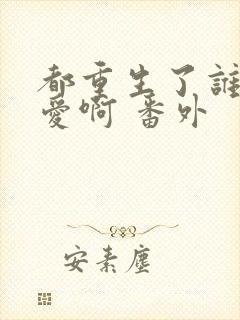 都重生了誰
愛啊 番外
安素塵